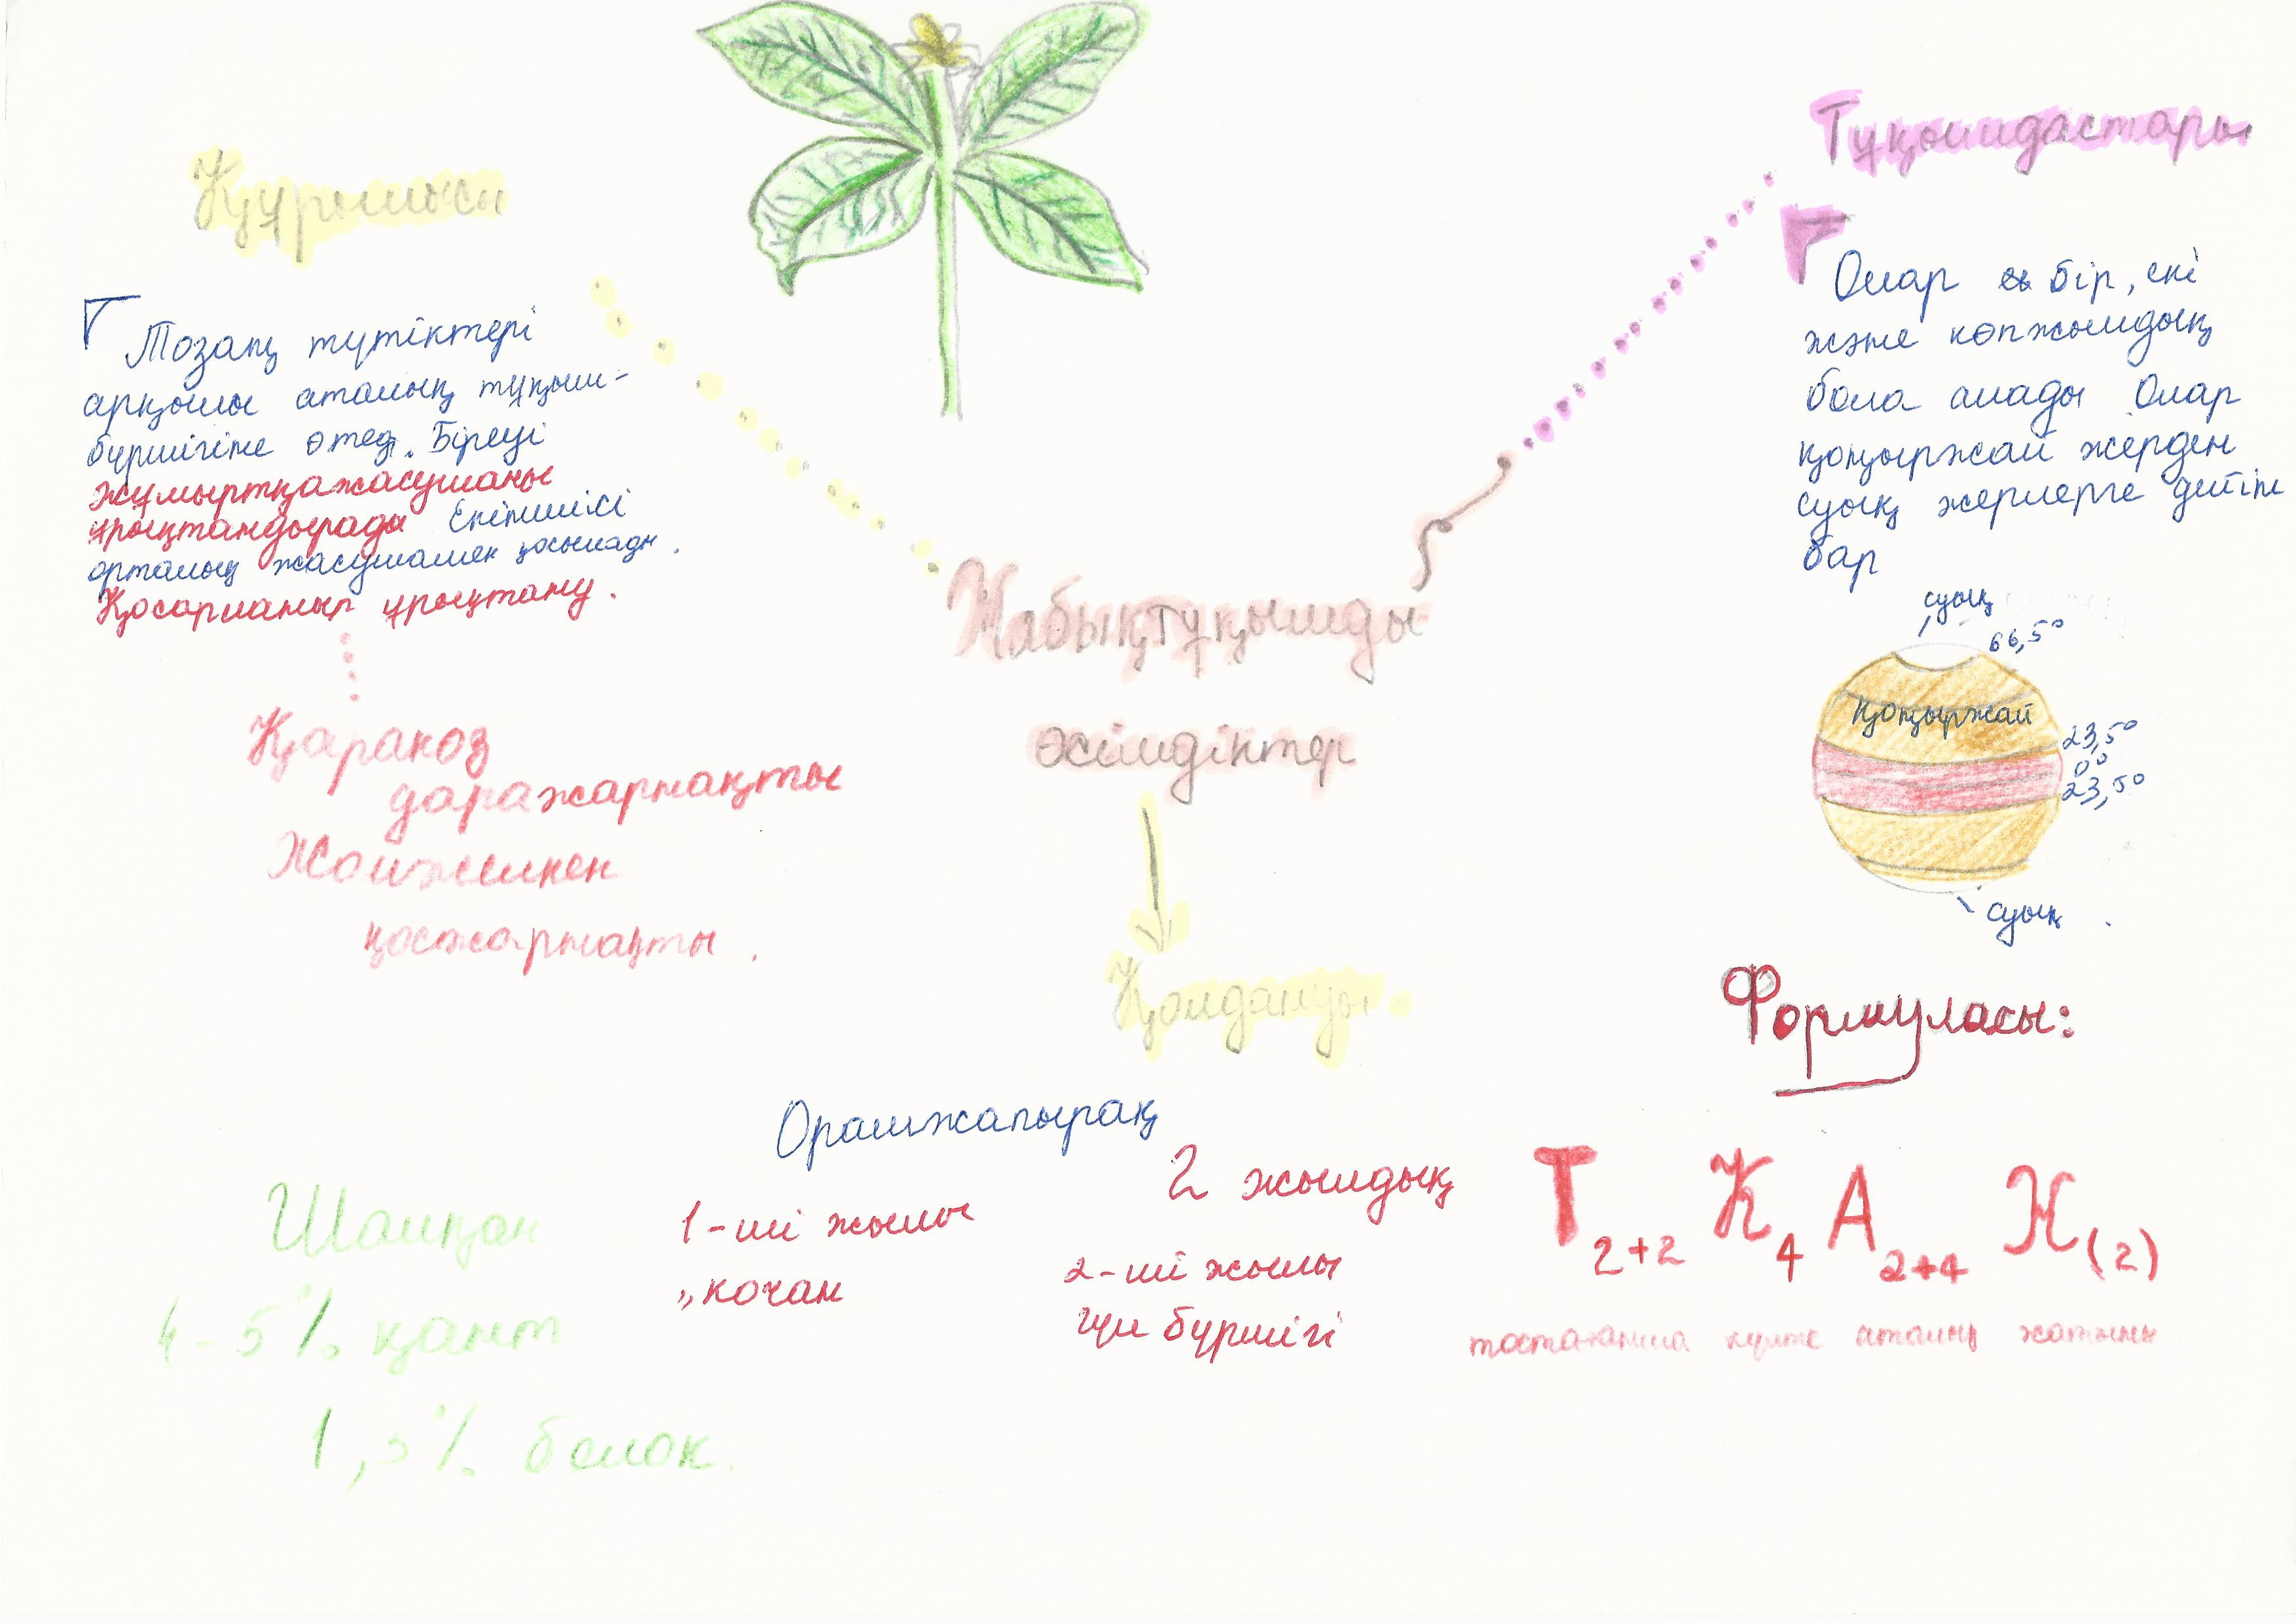 Құрылысы
Тозаң түтіктері
арқылы аталық тұқым-
бүршігіне өтед. Біреуі
жұмыртқажасушаны
ұрықтандырады Екіншісі
орталық жасушамен қосылады.
Қосарланып ұрықтану.
Қаракөз
даражарнақты
Жолжелкен
қосжарнақты.
Жабықтұқымды
өсімдіктер
Қолдануы.
Тұқымдастары
Олар бір, екі
және көпжылдық
бола алады Олар
қоңыржай жерден
суық жерлерге дейін
бар
суық
66,5°
қоңыржай
23,5°
0°
23,5°
суық
Формуласы:
Т2+2 К4 А2+4 Ж(2)
тостағанша күлте аталық жатыны
Орамжапырақ
2 жылдық
1-ші жылы
„кочан
2-ші жылы
гүл бүршігі
Шалқан
4-5% қант
1,5% белок.